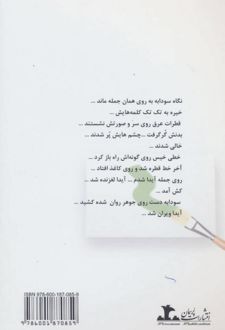 نگاه سودابه به روی همان جمله ماند ...
خیره به تک تک کلمه‌هایش ...
قطرات عرق روی سر و صورتش نشستند ...
بدنش گر گرفت ... چشم هایش پر شدند ...
خالی شدند ...
خطی خیس روی گونه‌اش راه باز کرد ...
آخر خط قطره شد و روی کاغذ افتاد ...
روی جمله آیدا شدم ... آیدا لغزنده شد ...
کش آمد ...
سودابه دست روی جوهر روان شده کشید ...
آیدا ویران شد ...
ISBN:978-600-187-085-9
9786001870859
انتشارات پرسمان